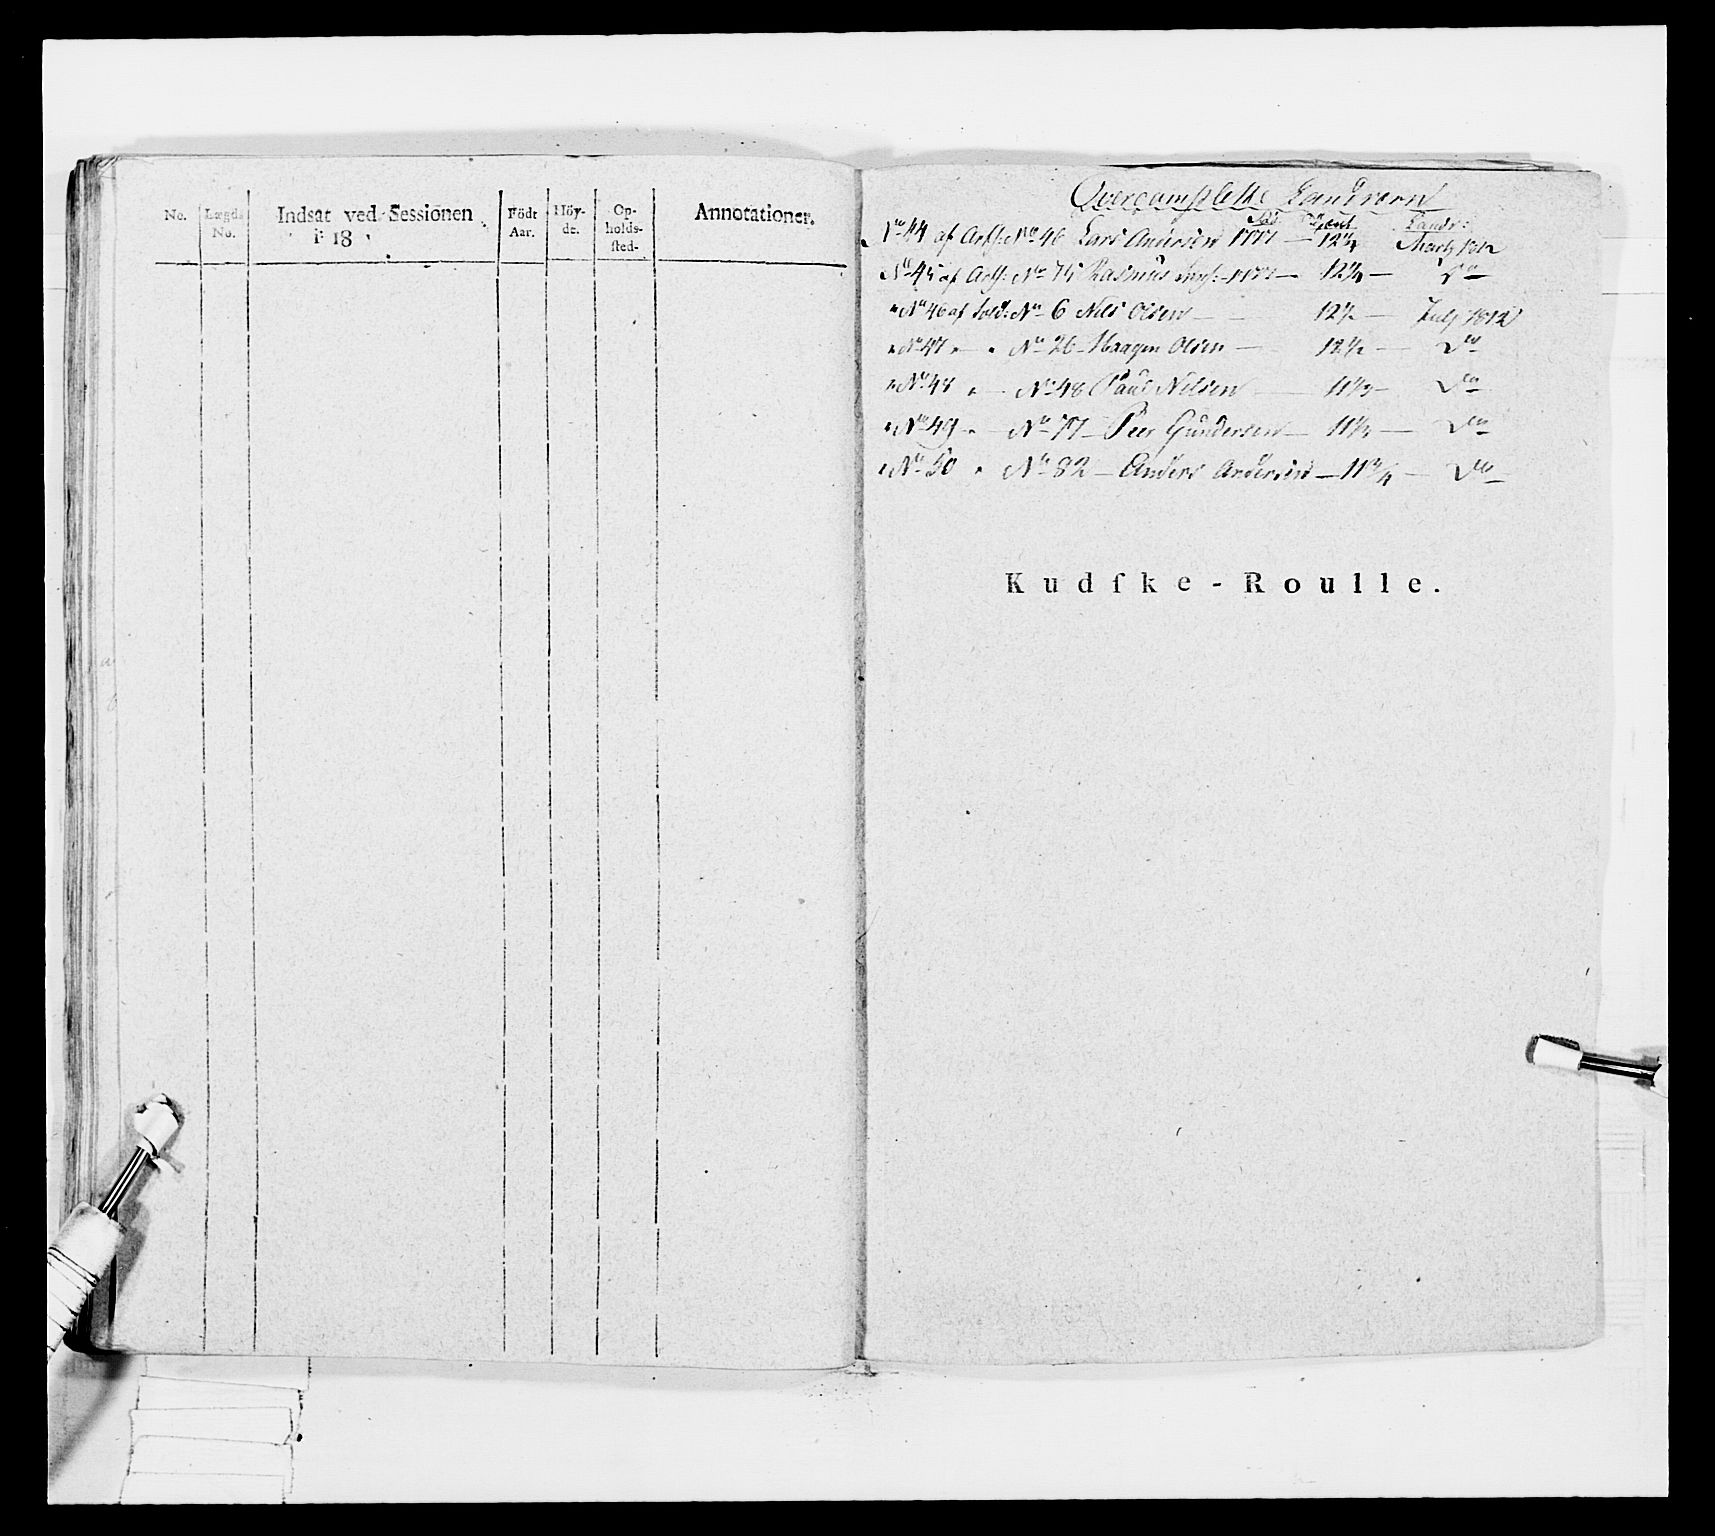 No. Lægds No. Indsat ved Sessionen i 18 Födt Aar. Höyde. Opholdssted. Annotationer.
Overcomplette Landværn
Landv:
No 44 af No 46 Lars Andersen 1777 — 12¼ Marty 1812
No 45 af No 75 Rasmus 1777 — 12¼ — Do
No 46 af Sold: No 6 Nils Olsen — 12½ — July 1812
No 47 " " No 26 Haagen Olsen — 12½ — Do
No 48 " — No 48 Paul Nilsen — 11½ — Do
No 49 " — No 77 — Peer Gundersen — 11½ — Do
No 50 " No 82 — Anders Andersen — 11¾ — Do
Kudſke-Roulle.